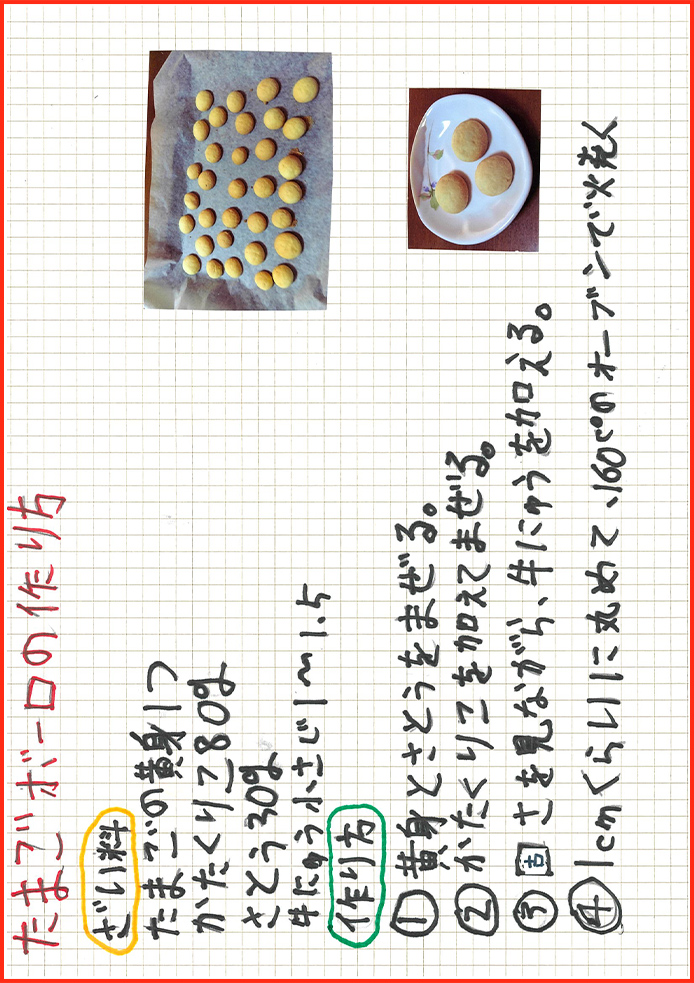 たまごボーロの作り方
ざい料
たまごの黄身1つ
かたくりこ80g
さとう30g
牛にゅう小さじ1~1.5
作り方
①黄身とさとうをまぜる。
②かたくりこを加えてまぜる。
③固さを見ながら、牛にゅうを加える。
④1cmくらいに丸めて、160℃のオーブンで火乾く